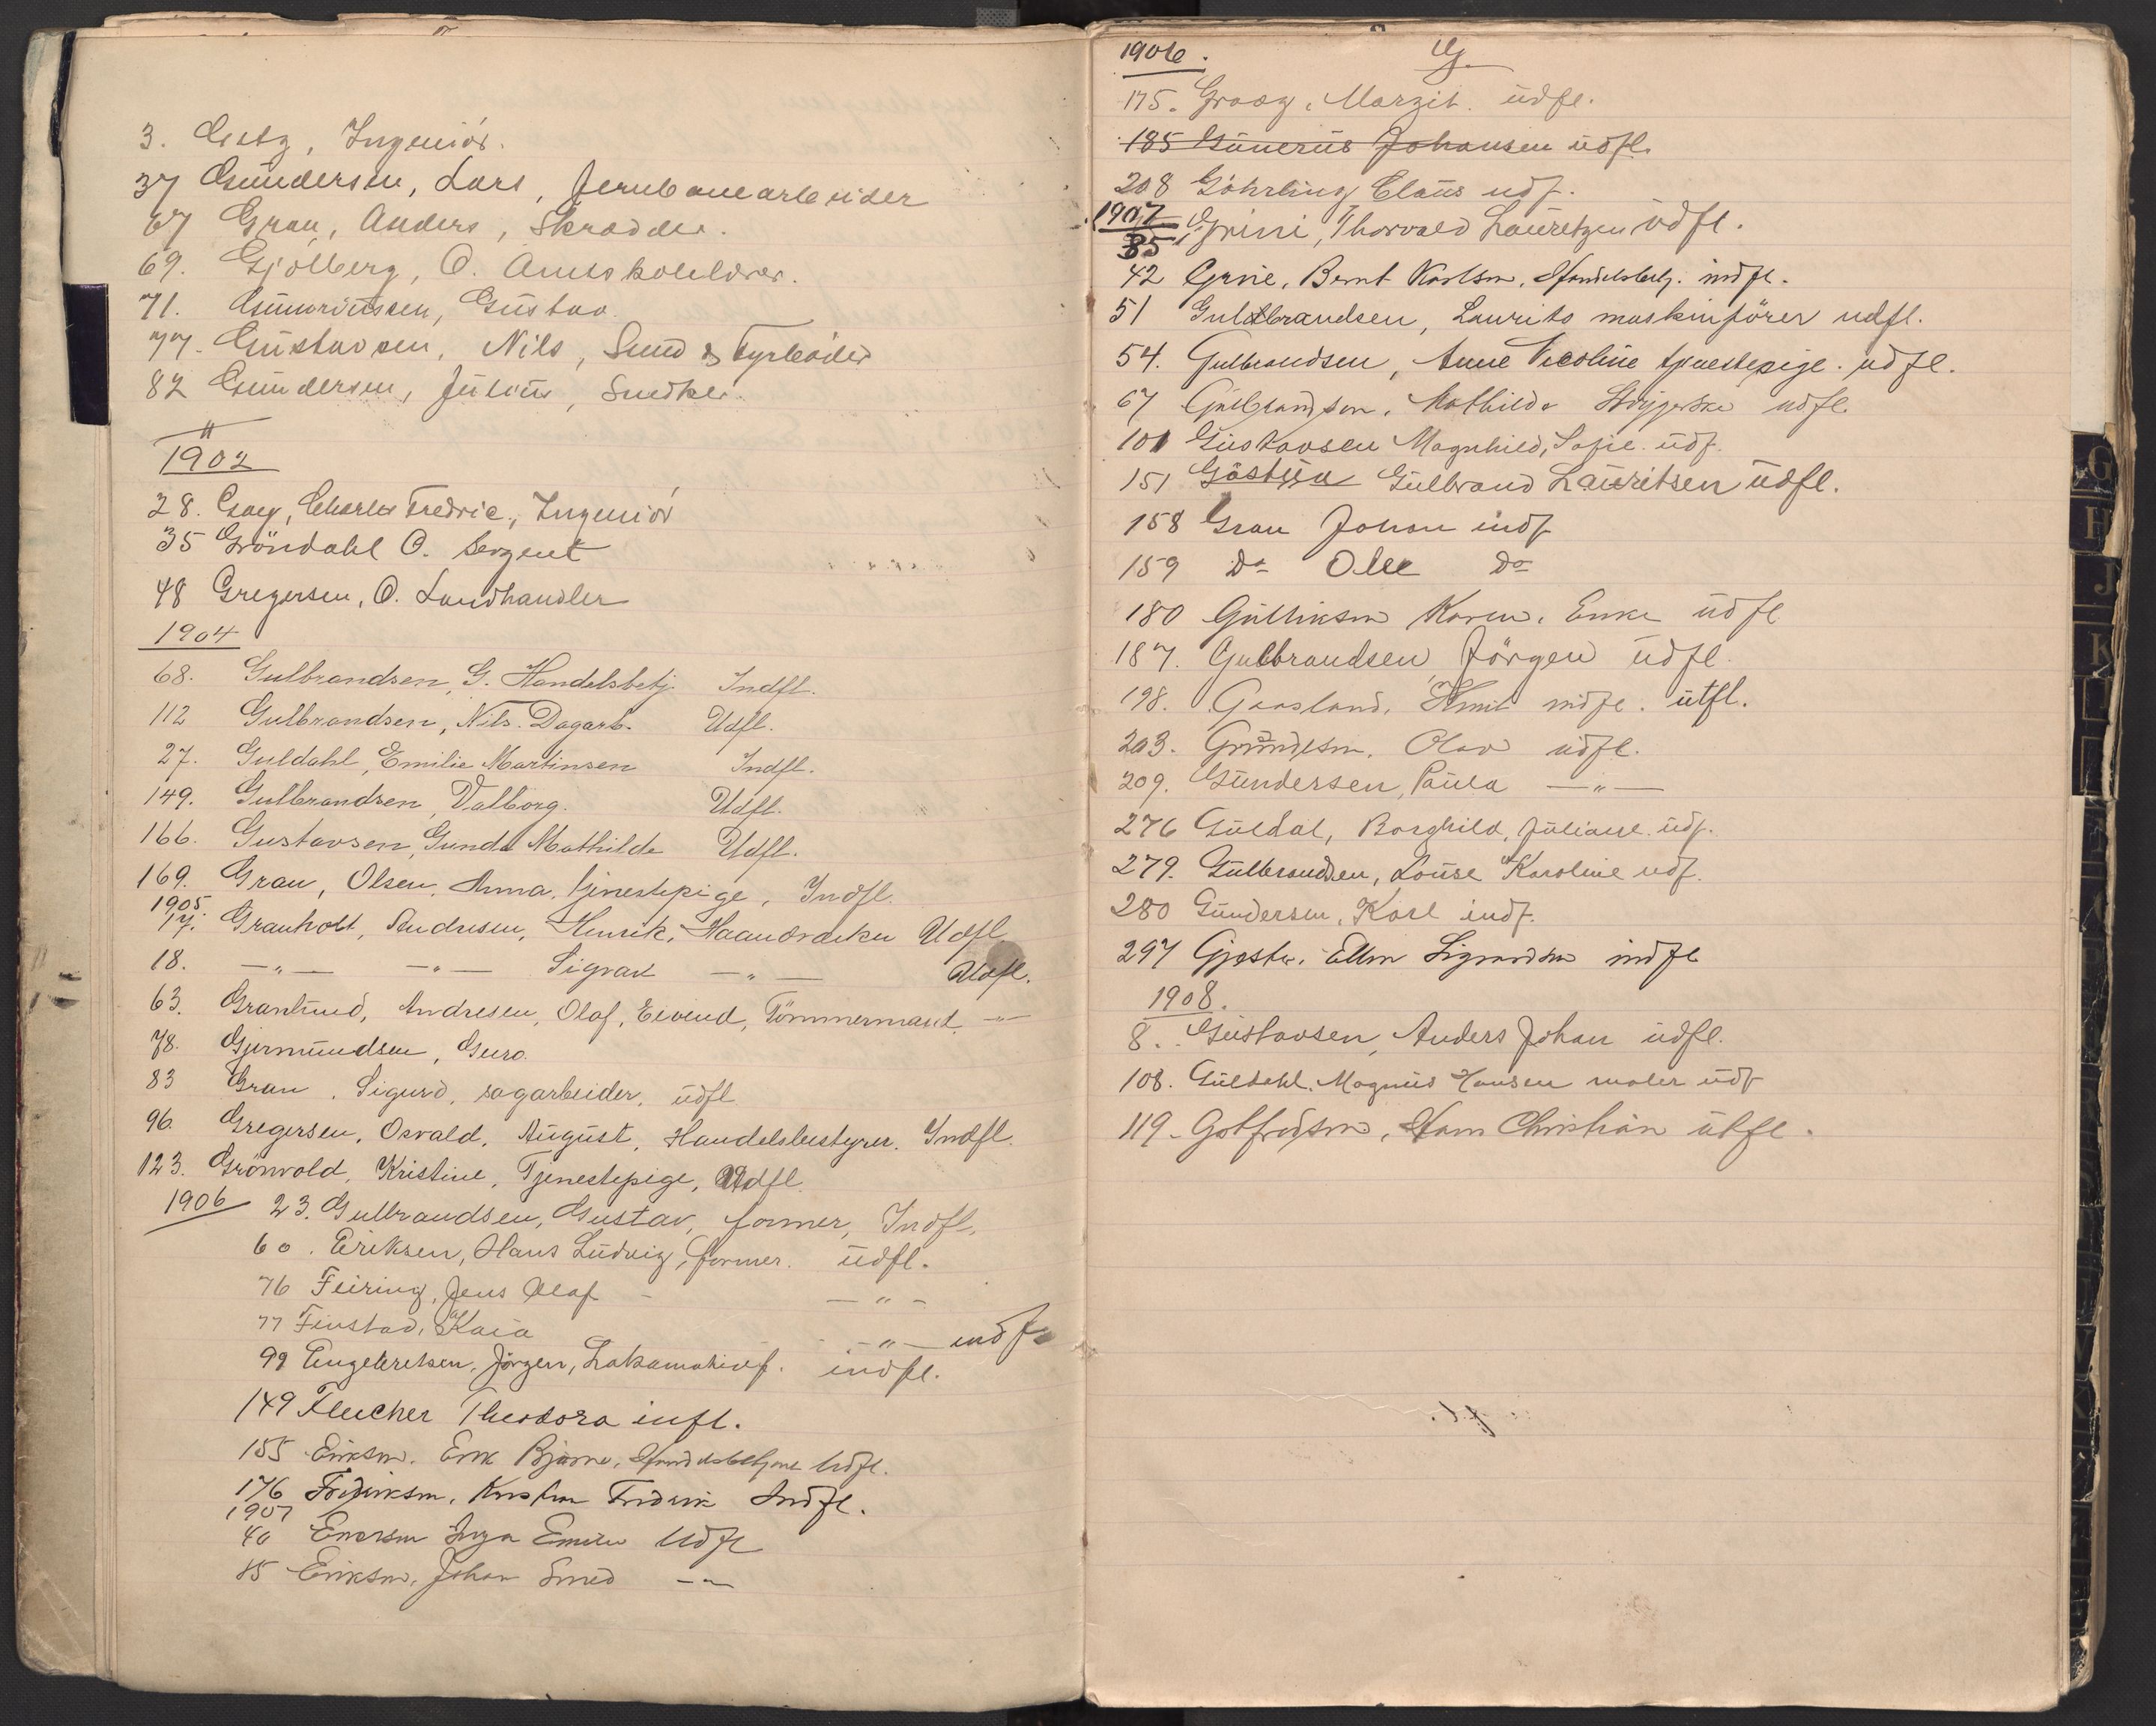 3. Gætz, Ingeniør.
37 Gundersen, Lars, Jernbanearbeider
67 Gran, Anders, Skrædder.
69. Gjølberg, O.
71. Gunvoriussen, Gustav.
77. Gustavsen, Nils, Smed & Fyrbøder
82 Gundersen, Julius, Snedker.
1902
28. Gay, Charles Fredric, Ingeniør
35 Gröndahl O. Sergent
48 Gregersen, O. Landhandler
1904
68. Gulbrandsen, G. Handelsbetj. Indfl.
112 Gulbrandsen, Nils. Dagarb. Udfl.
27. Guldahl, Emilie Martinsen Indfl.
149. Gulbrandsen, Valborg. Udfl.
166. Gustavsen, Gunda Mathilde Udfl.
169. Grau, Olsen, Anna, tjenestepige, Indfl.
1905.
17. Granholt, Andresen, Henrik, Haandværker Udfl
18. —„— —„— Sigvart —„— Udfl.
63. Granlund, Andresen, Olaf, Eivend, Tömmermand —„—
78. Gjermundsen, Guro.
83 Gran, Sigurd, sagarbeider, udfl.
96. Gregersen, Osvald, August, Handelsbestyrer. Indfl.
123. Grönvold, Kristine, Tjenestepige, Udfl.
1906 23. Gulbrandsen, Gustav, former, Indfl.
60. Eriksen, Hans Ludvig, former. udfl.
76 Feiring, Jens Olaf - —„—
77 Finstad, Kaia —„— indfl
99 Engebretsen, Jörgen, Lokomotivf. indfl.
149 Flucher Theodora infl.
155 Eriksen. Erik Bjarne, Handelsbetjent Udfl.
176 Fredriksen, Kristian Fredrik Indfl.
1907
40 Enersen Inga Emilie Udfl
85 Eriksen, Johan Smed —„—
1906. G.
175. Graag, Margit. udfl.
185 Gunerius Johansen udfl.
208 Göhrling Claus udf.
1907
35 Grini, Thorvald Lauretzen udfl.
42 Grue, Bernt Karlsen, Handelsbetj. indfl.
51 Guldbrandsen, Laurits maskinförer udfl.
54. Gulbrandsen, Anne Nicoline tjenestepige. udfl.
67 Gulbrandsen, Mathilde Strygerske udfl.
101 Gustavsen Magnhild, Sofie. udf.
151 Gåstjern Gulbrand Lauritsen udfl.
158 Gran Johan indf
159 Do Ole Do
180 Gulliksen Karen. Enke udfl
187. Gulbrandsen, Jörgen udfl.
198. Gaasland, Knut indfl. utfl.
203. Grundesen, Olav udfl.
209. Gundersen, Paula —„—
276 Guldal, Borghild, Juliane. udf.
279. Gulbrandsen, Louise Karoline udf.
280 Gundersen, Karl indf.
297 Gjøste. Ellen Sigvardsen indfl
1908.
8. Gustavsen, Anders Johan udfl.
108. Guldahl. Magnus Hansen maler udf
119. Gotfredsen, Hans Christian utfl.
G
H
J
K